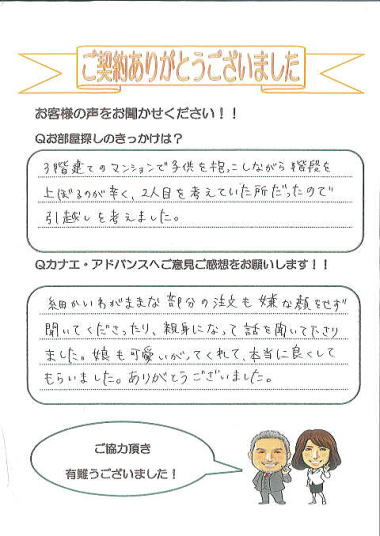 ご契約ありがとうございました
お客様の声をお聞かせください！！
Qお部屋探しのきっかけは？
3階建てのマンションで子供を抱っこしながら階段を
上ぼるのが辛く、2人目を考えていた所だったので
引越しを考えました。
Qカナエ・アドバンスへご意見ご感想をお願いします！！
細かいわがままな部分の注文も嫌な顔をせず
聞いてくださったり、親身になって話を聞いて下さり
ました。娘も可愛いがってくれて、本当に良くして
もらいました。ありがとうございました。
ご協力頂き
有難うございました！